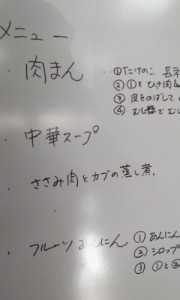 メニュー
・肉まん
①たけのこ 長ネ
②①をひき肉
③皮をのばして
④むし器でむ
・中華スープ
・ささみ肉とカブの蒸し煮.
・フルーツあんにん
①あんにん
②シロップ
③①と②